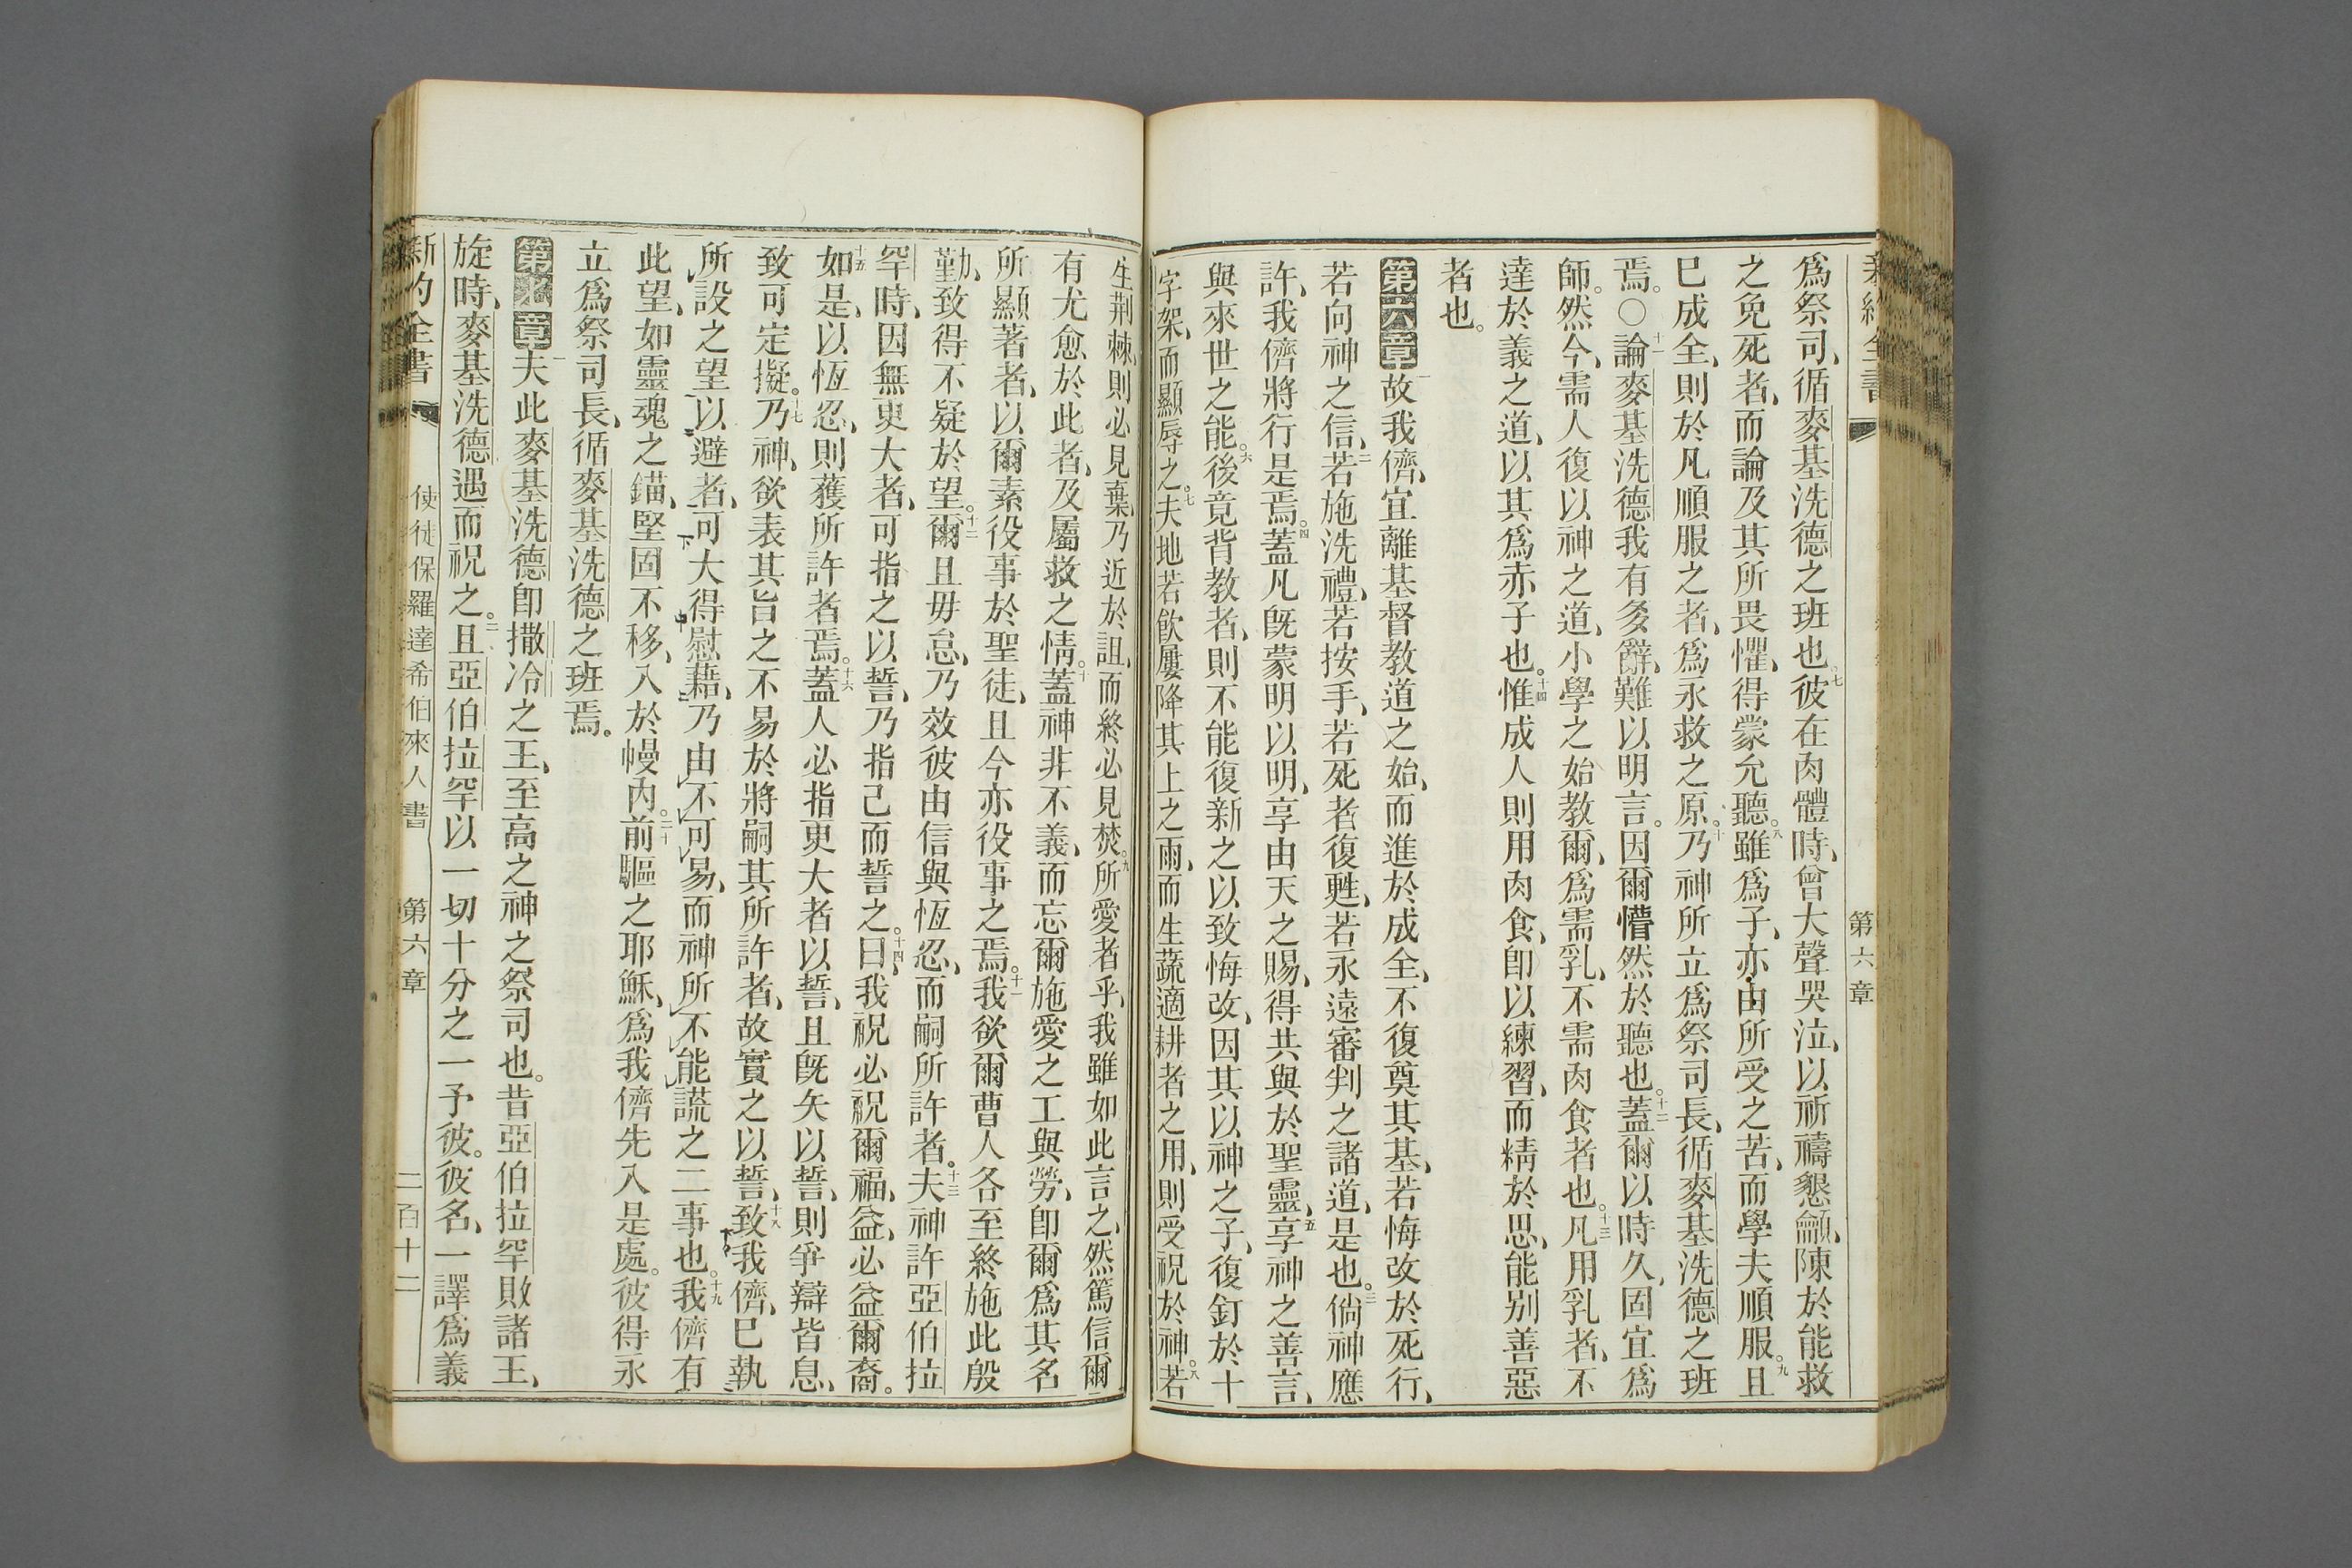 全書
第六章
爲祭司、循麥基洗德之班也。七彼在肉體時、曾大聲哭泣、以祈禱懇龥、陳於能救
之免死者、而論及其所畏懼、得蒙允聽。八雖爲子、亦由所受之苦、而學夫順服。九且
巳成全、則於凡順服之者、爲永救之原。十乃神所立爲祭司長、循麥基洗德之班
焉。〇十一論麥基洗德我有多辭、難以明言。因爾懵然於聽也。十二蓋爾以時久、固宜爲
師。然今、需人復以神之道、小學之始教爾、爲需乳、不需肉食者也。十三凡用乳者、不
達於義之道、以其爲赤子也。十四惟成人則用肉食、卽以練習、而精於思、能别善惡
者也。
第六章一故我儕、宜離基督教道之始、而進於成全、不復奠其基、若悔改於死行、
若向神之信、二若施洗禮、若按手、若死者復甦、若永遠審判之諸道、是也。三倘神應
許、我儕將行是焉。四蓋凡旣蒙明以明、享由天之賜、得共與於聖靈、五享神之善言、
與來世之能。六後竟背教者、則不能復新之以致悔改、因其以神之子、復釘於十
字架、而顯辱之。七夫地若飲屢降其上之雨、而生蔬適耕者之用、則受祝於神。八若
生荆棘、則必見棄、乃近於詛、而終必見焚。九所愛者乎、我雖如此言之、然篤信爾
有尤愈於此者、及屬救之情。十蓋神非不義、而忘爾施愛之工與勞、卽爾爲其名
所顯著者、以爾素役事於聖徒、且今亦役事之焉。十一我欲爾曹人各至終施此殷
勤、致得不疑於望。十二爾且毋怠、乃效彼由信與恆忍、而嗣所許者。十三夫神許亞伯拉
罕時、因無更大者、可指之以誓、乃指己而誓之。十四曰、我祝必祝爾福、益必益爾裔。
十五如是、以恆忍、則獲所許者焉。十六蓋人必指更大者以誓、且旣矢以誓、則爭辯皆息、
致可定擬。十七乃神、欲表其旨之不易於將嗣其所許者、故實之以誓、十八致我儕、巳執
所設之望以避者、可大得慰藉、乃由不可易、而神所不能謊之二事也。十九我儕有
此望、如靈魂之錨、堅固不移、入於幔內。二十前驅之耶穌、爲我儕先入是處。彼得永
立爲祭司長、循麥基洗德之班焉。
第七章一夫此麥基洗德卽撒冷之王、至高之神之祭司也。昔亞伯拉罕敗諸王、
旋時、麥基洗德遇而祝之。二且亞伯拉罕以一切十分之一予彼。彼名、一譯爲義
新約全書 使徒保羅達希伯來人書 第六章 二百十二